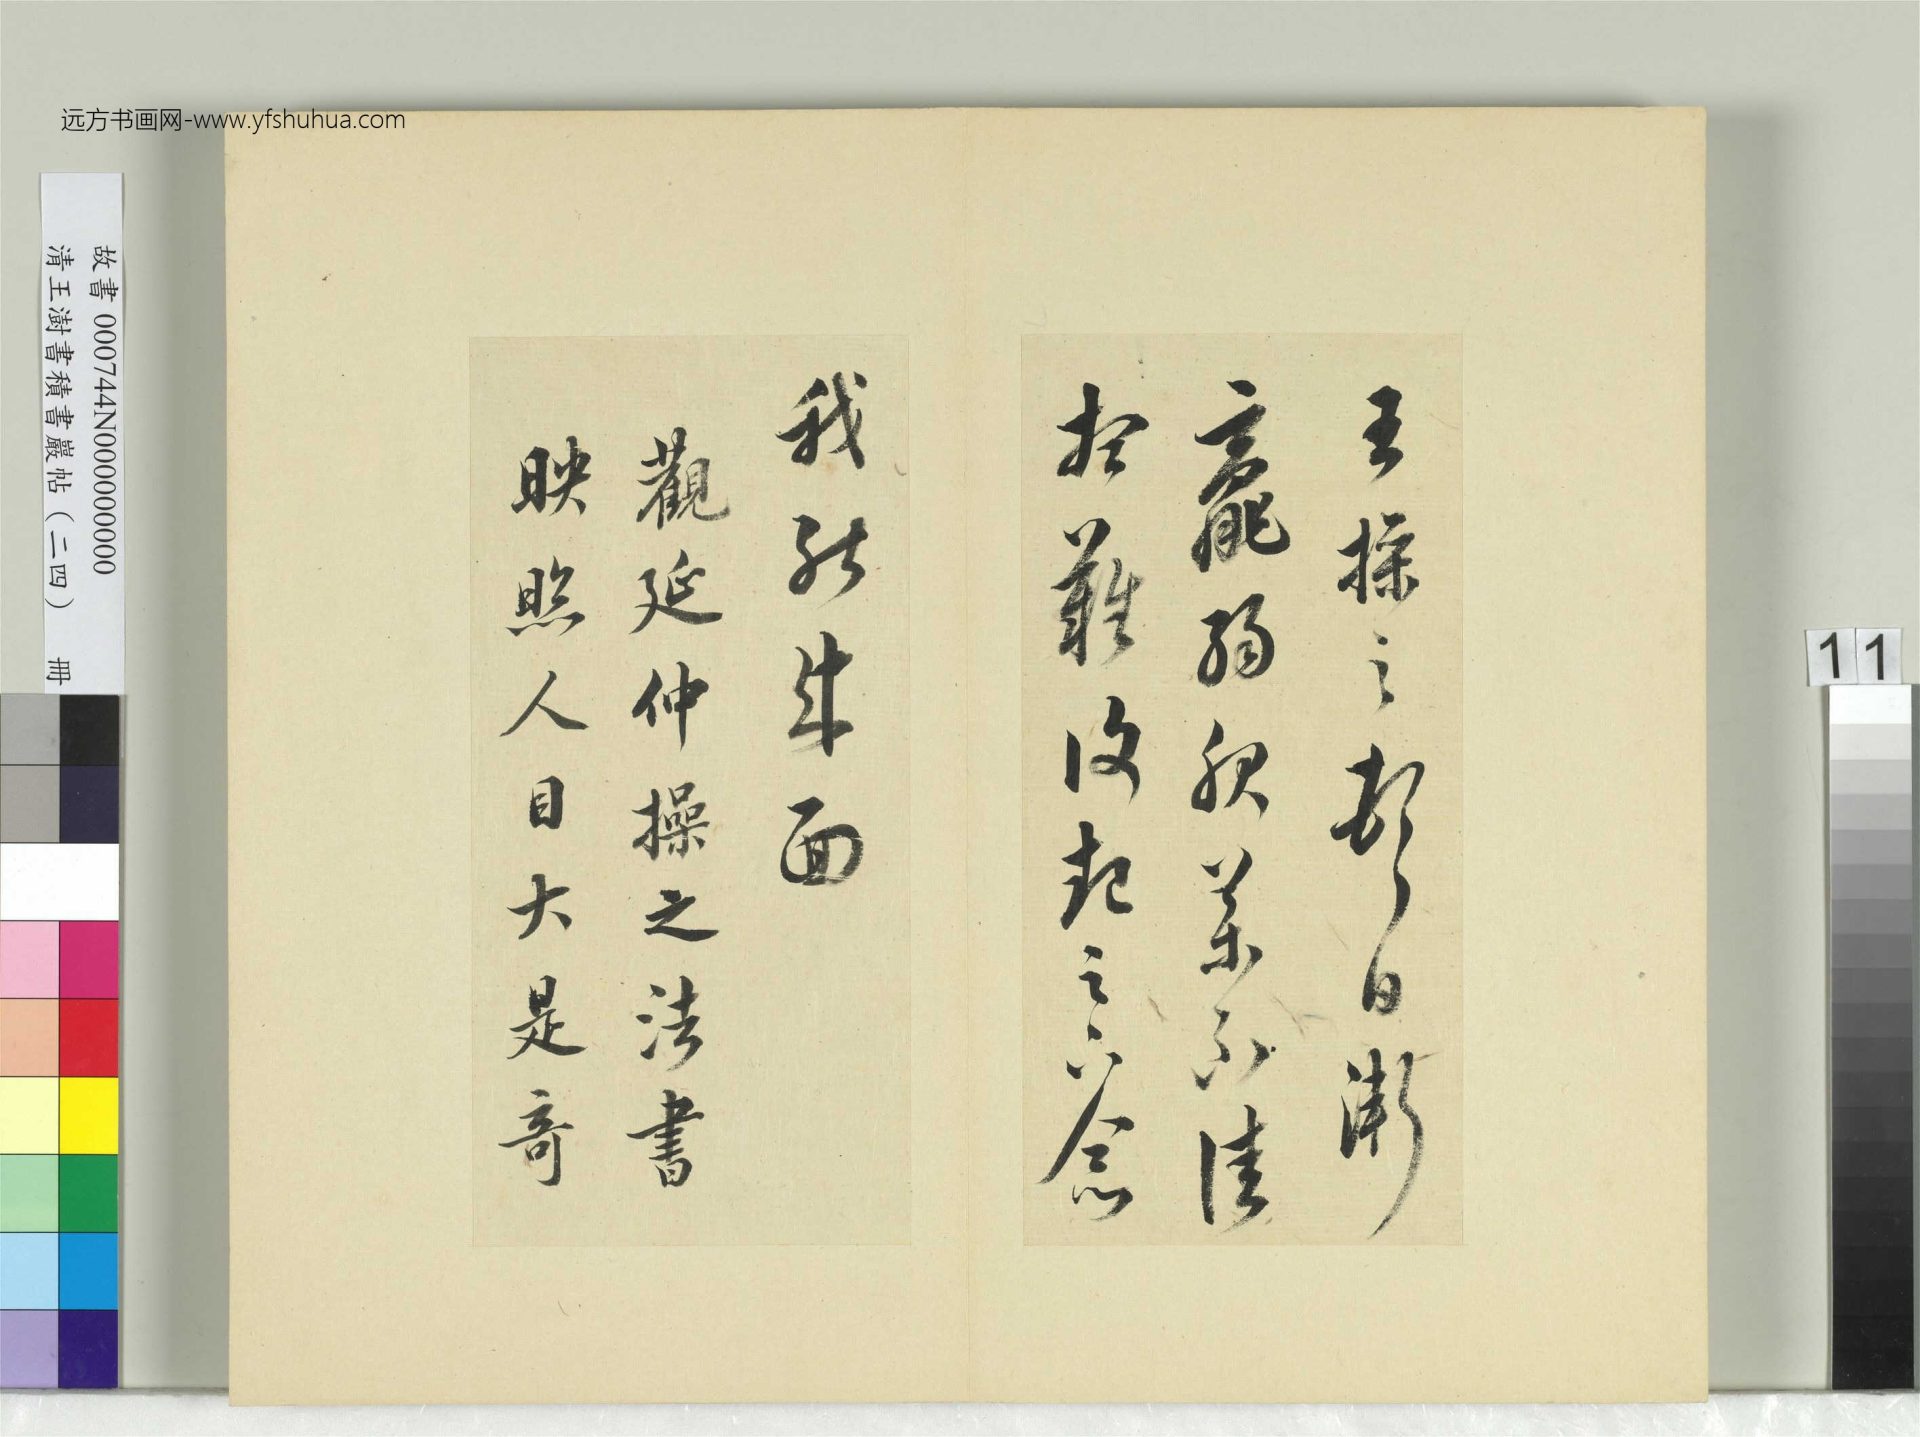 远方书画网-www.yfshuhua.com
故書 000744N000000000
清王澍書積書巖帖(二四) 冊
王操之日漸
羸弱服藥不佳
難復起之念
我能面
觀延仲操之法書
映照人目大是奇
11